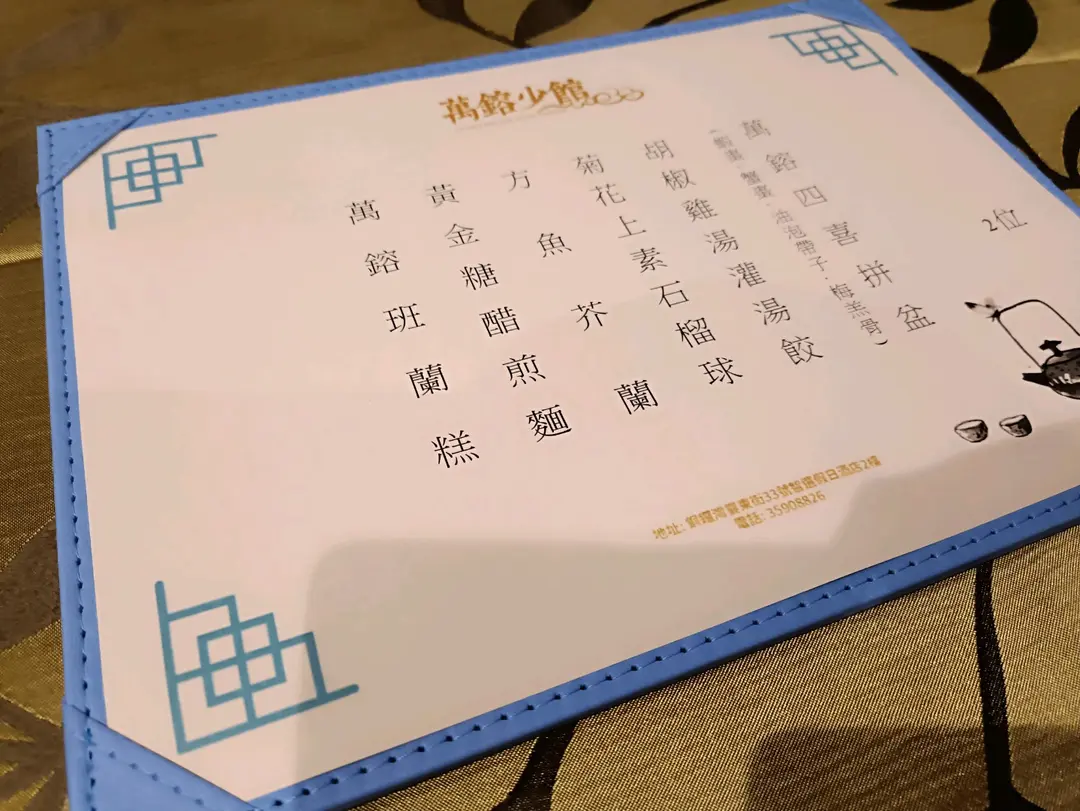 萬鎔少館
2位
萬鎔四喜拼盆
(蝦棗.蟹棗.油泡帶子.梅羔骨)
胡椒雞湯灌湯餃
菊花上素石榴球
方魚芥蘭
黃金糖醋煎麵
萬鎔班蘭糕
地址: 銅鑼灣霎東街33號智選假日酒店2樓
電話: 35908826